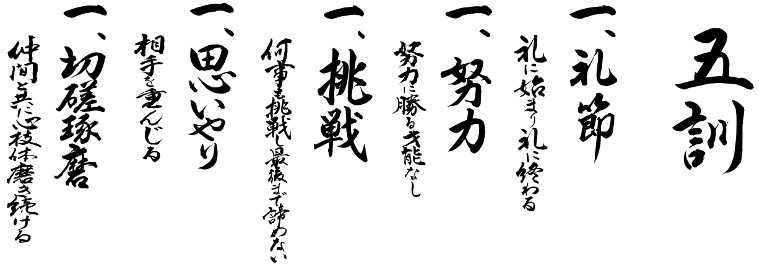 五訓
一、礼節
礼に始まり礼に終わる
一、努力
努力に勝る才能なし
一、挑戦
何事も挑戦し最後まで諦めない
一、思いやり
相手を重んじる
一、切磋琢磨
仲間と共に心技体磨き続ける